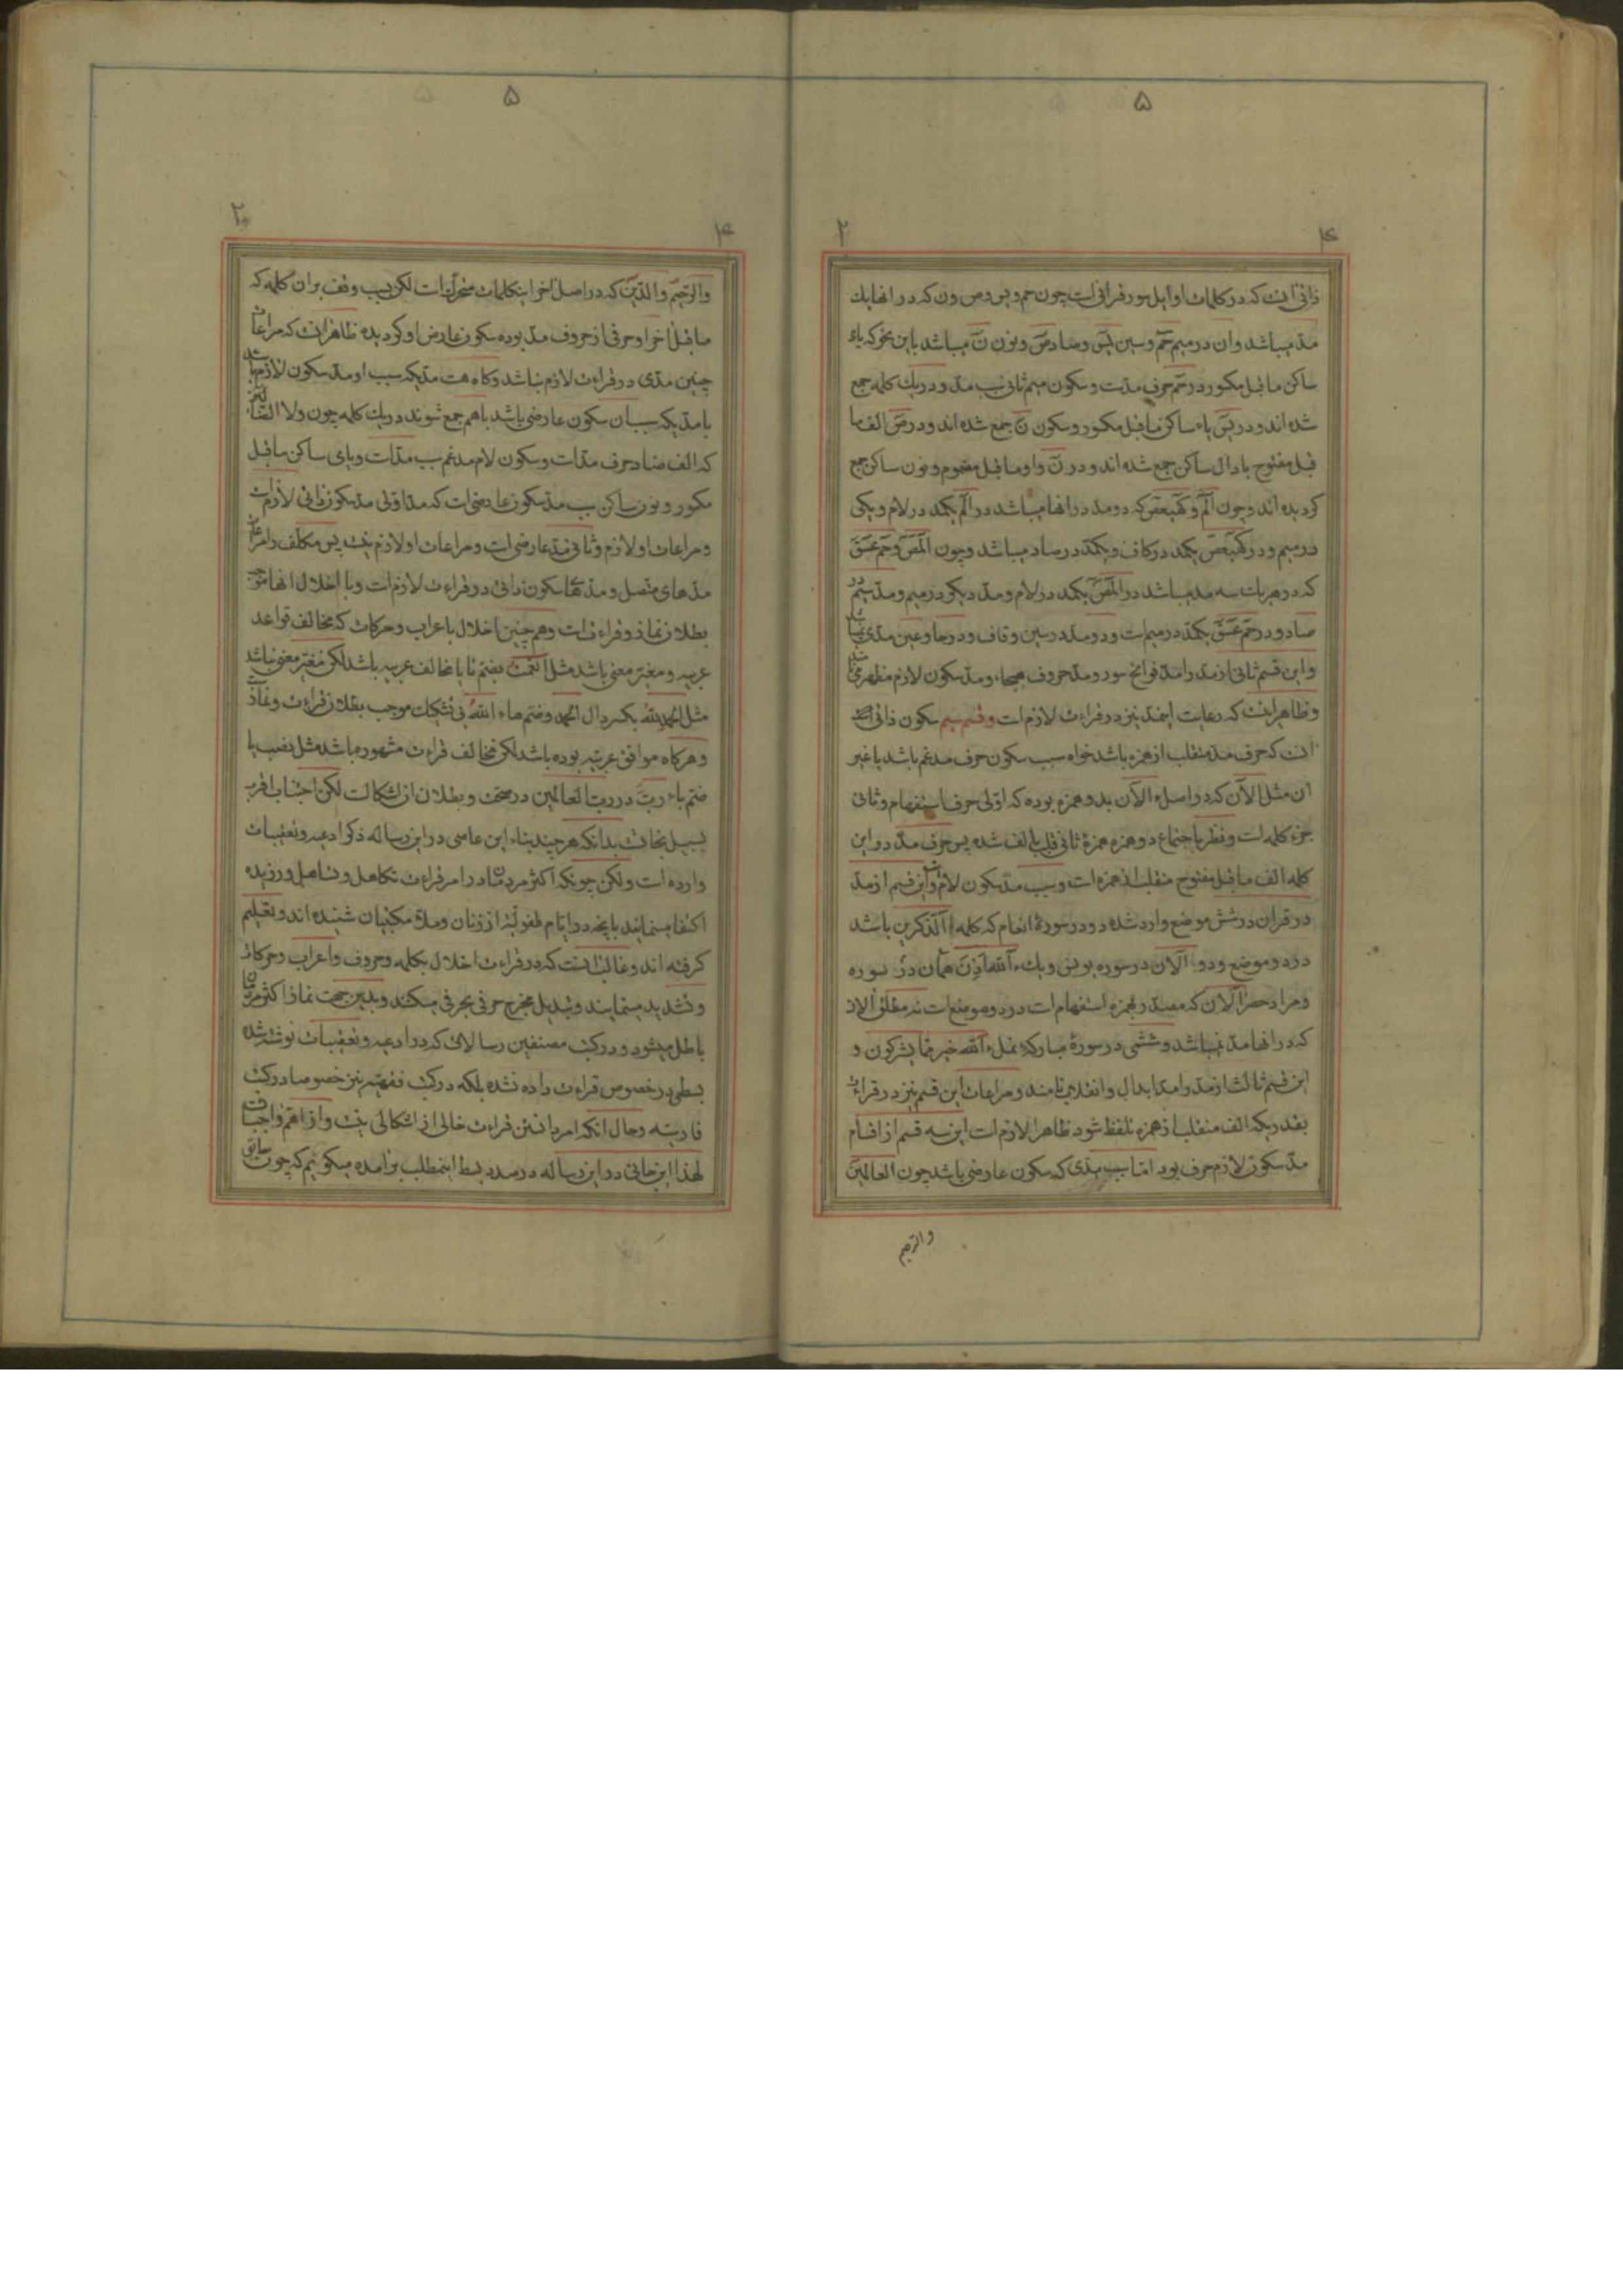 ۵
۴ ۲
ذاتی آنست که در کلمات اوایل سور قرانی است چون حم و یس و ص و ن که در انها یك
مد میباشد و ان در میم حم و سین یس و صاد ص و نون ن میباشد باین نحو که یاء
ساکن ماقبل مکسور در حم حرف مدست و سکون میم ثانی سبب مد و در یك کلمه جمع
شده اند و در یس یاء ساکن ماقبل مکسور و سکون ن جمع شده اند و در ص الف ما
قبل مفتوح با دال ساکن جمع شده اند و در ن واو ماقبل مضموم و نون ساکن جمع
کردیده اند و چون الم و کهیعص که دو مد در انها میباشد در الم یکمد در لام و یکی
در میم و در کهیعص یکمد در کاف و یکمد در صاد میباشد و چون المص و حم عسق
که در هر یك سه مد میباشد در المص یکمد در لام و مد دیکر در میم و مد سیم در
صاد و در حم عسق یکمد در میم است و دو مد در سین و قاف و در حا و عین مدی نباشد
و این قسم ثانی از مد را مد فواتح سور و مد حروف هیجاء و مد سکون لازم مظهر مینامند
و ظاهر اینست که رعایت اینمد نیز در قراءت لازم است و قسم سیم سکون ذاتی
انست که حرف مد منقلب از همزه باشد خواه سبب سکون حرف مدغم باشد یا غیر
ان مثل الآن که در اصل ءالآن بدو همزه بوده که اولی حرف استفهام و ثانی
جزء کلمه است و نظر باجتماع دو همزه همزهٔ ثانی قلب بالف شده پس حرف مد در این
کلمه الف ماقبل مفتوح منقلب از همزه است و سبب مد سکون لام است و این قسم از مد
در قران در شش موضع وارد شده دو در سورهٔ انعام که کلمه ءآلذکرین باشد
در دو موضع و دو ءآلان در سوره یونس و یك ءآلله اذن همان در سوره
و مراد حصر ءآلان که مصدر بهمزه استفهام است در دو موضع است نه مطلق الان
که در انها مد نمیباشد و ششمی در سورهٔ مبارکهٔ نمل ءآلله خیر اما یشرکون و
این قسم ثالث از مد را مد ابدال و انقلاب نامند و مراعات این قسم نیز در قراءت
بقدریکه الف منقلب از همزه تلفظ شود ظاهرا لازم است این سه قسم از اقسام
مد سکون لازم حرف بود اما سبب مدی که سکون عارضی باشد چون العالمین
والرحیم
۵
۴ ۲۰
والرحیم والدین که در اصل اخر اینکلمات متحرك است لکن بسبب وقف بر ان کلمه که
ماقبل اخر او حرفی از حروف مد بوده سکون عارض او کردیده ظاهر انست که مراعات
چنین مدی در قراءت لازم نباشد و کاه هست مدیکه سبب او مد سکون لازم باشد
با مدیکه سبب ان سکون عارضی باشد باهم جمع شوند در یك کلمه چون ولا الضالین
که الف ضاد حرف مد است و سکون لام مدغم سبب مد است و یای ساکن ماقبل
مکسور و نون ساکن سبب مد سکون عارضی است که مد اولی مد سکون ذاتی لازم است
و مراعات او لازم و ثانی مد عارضی است و مراعات او لازم نیست پس مکلف را مراعات
مدهای متصل و مدهای سکون ذاتی در قراءت لازم است و با اخلال انها موجب
بطلان نماز و قراءت است و هم چنین اخلال باعراب و حرکات که مخالف قواعد
عربیه و مغیر معنی باشد مثل انعمت بضم تا یا مخالف عربیه باشد لکن مغیر معنی نباشد
مثل الحمد لله بکسر دال الحمد و ضم هاء الله بی تشکیك موجب بطلان قراءت و نماز است
و هرکاه موافق عربیه بوده باشد لکن مخالف قراءت مشهوره باشد مثل نصب یا
ضم باء رب در رب العالمین در صحت و بطلان ان اشکالست لکن اجتناب اقرب
بسبیل نجات بدانکه هر چند بناء این عاصی در این رساله ذکر ادعیه و تعقیبات
وارده است و لکن چونکه اکثر مردمان در امر قراءت تکاهل و تساهل ورزیده
اکتفا مینمایند بانچه در ایام طفولیة از زنان و ملاء مکتبیان شنیده اند و تعلیم
کرفته اند و غالب اینست که در قراءت اخلال بکلمه و حروف و اعراب و حرکات
و تشدید مینمایند و تبدیل مخرج حرفی بحرفی میکنند و بدین جهت نماز اکثر مردمان
باطل میشود و در کتب مصنفین رسالاتی که در ادعیه و تعقیبات نوشته شده
بسطی در خصوص قراءت داده نشده بلکه در کتب فقهیه نیز خصوصا در کتب
فارسیه و حال انکه امر دانستن قراءت خالی از اشکالی نیست و از اهم واجبات
لهذا این جانی در این رساله در صدد بسط اینمطلب برامده میکوئیم که چون سابق